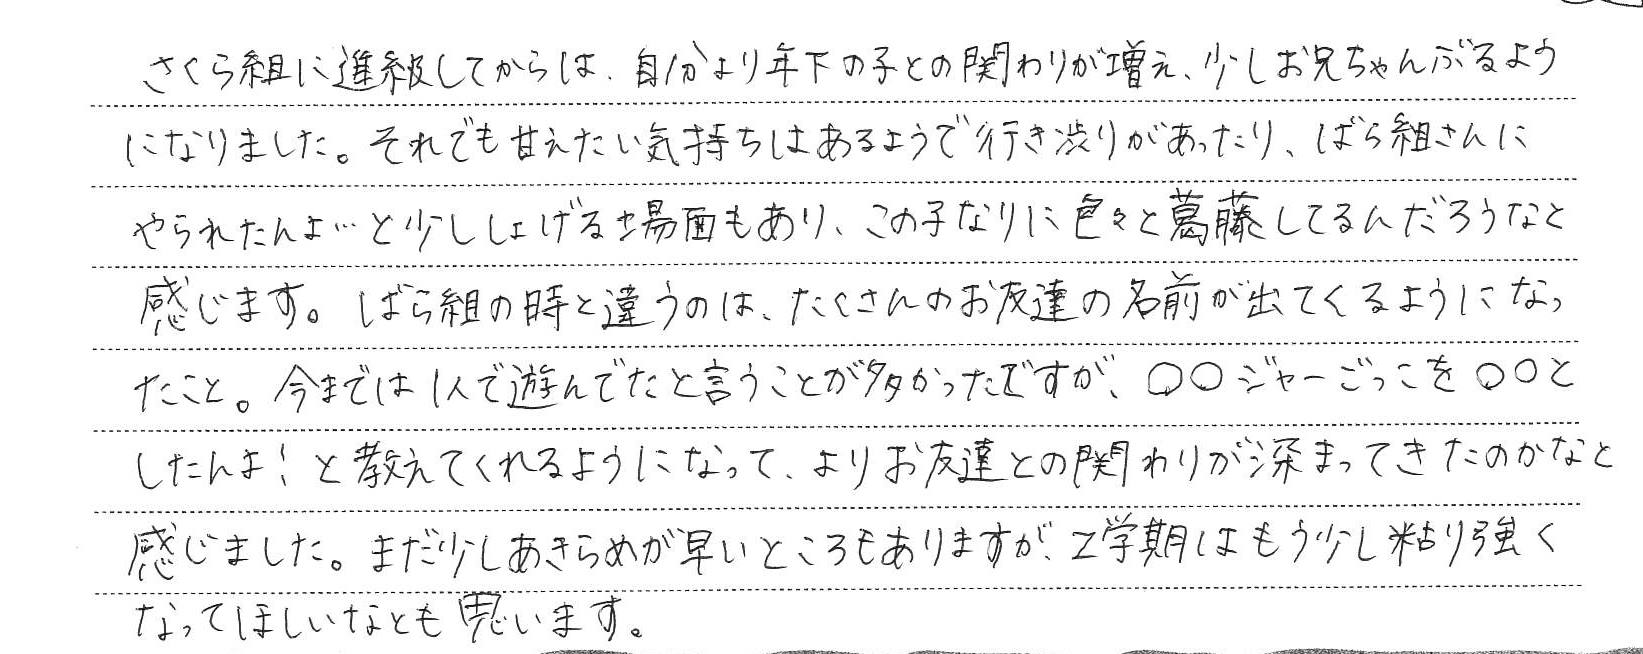 さくら組に進級してからは、自分より年下の子との関わりが増え、少しお兄ちゃんぶるよう
になりました。それでも甘えたい気持ちはあるようで行き渋りがあったり、ばら組さんに
やられたんよ…と少ししょげる場面もあり、この子なりに色々と葛藤してるんだろうなと
感じます。ばら組の時と違うのは、たくさんのお友達の名前が出てくるようになっ
たこと。今までは1人で遊んでたと言うことが多かったですが、○○ジャーごっこを○○と
したんよ!と教えてくれるようになって、よりお友達との関わりが深まってきたのかなと
感じました。まだ少しあきらめが早いところもありますが、2学期はもう少し粘り強く
なってほしいなとも思います。